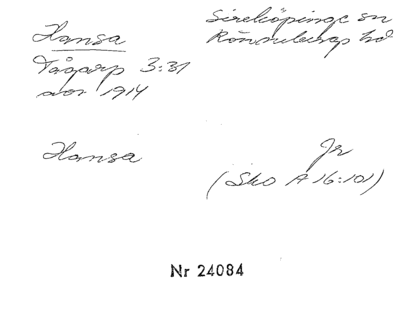 Hansa
Tågarp 3:31
avs 1914
Sireköpinge sn
Rönnebergs hd
Hansa
Jr
(Sko A 16:101)
Nr 24084